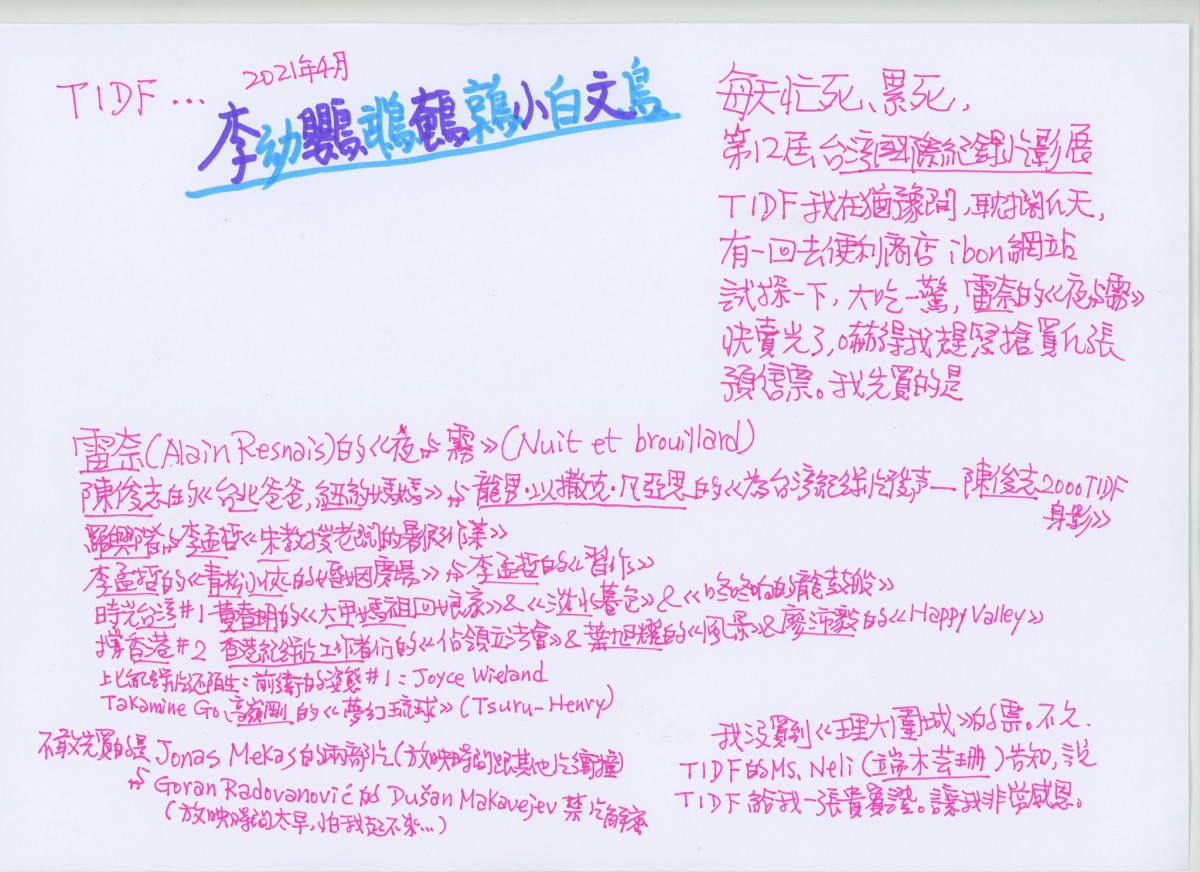 TIDF…
2021年4月
李幼鸚鵡鵪鶉小白文鳥
每天忙死、累死,
第12屆台灣國際紀錄片影展
TIDF我在猶豫間,耽擱几天,
有一回去便利商店 ibon網站
試探一下,大吃一驚,雷奈的《夜与霧》
快賣光了,嚇得我趕緊搶買几張
預售票。我先買的是
雷奈(Alain Resnais)的《夜与霧》(Nuit et brouillard)
陳俊志的《台北爸爸,紐約媽媽》与龍男·以撒克·凡亞思的《為台灣紀錄片發声—陳俊志2000TIDF
身影》
羅興階与李孟哲《宋教授老師的暑假作業》
李孟哲的《青松小俠的婚姻廣場》与李孟哲的《習作》
時光台湾#1 黃春明的《大甲媽祖回娘家》&《淡水暮色》&《咚咚响的龍鼓船》
撐香港#2 香港紀錄片工作者们的《佔領立法會》&葉旭耀的《風景》&廖沛毅的《Happy Valley》
比紀錄片还陌生:前衛的姿態#1:Joyce Wieland
Takamine Go、高嶺剛的《夢幻琉球》(Tsuru-Henry)
不敢先買的是 Jonas Mekas的兩部片(放映時間跟其他片衝撞)
与 Goran Radovanović的 Dušan Makavejev 禁片解密
(放映時間太早,怕我起不來…)
我沒買到《理大圍城》的票。不久.
TIDF的Ms. Neli(端木芸珊)告知,說
TIDF給我一張貴賓證。讓我非常感恩。